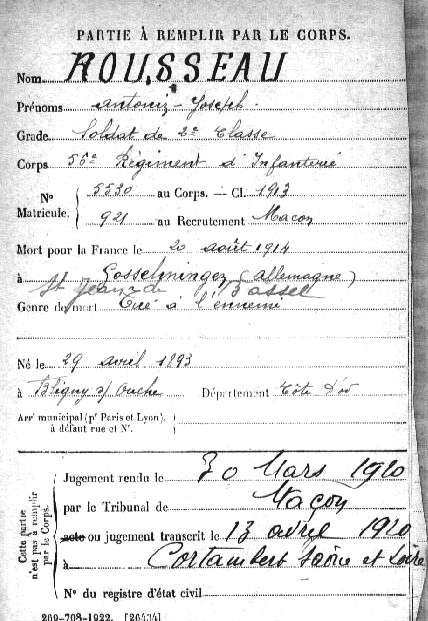 PARTIE À REMPLIR PAR LE CORPS.
Nom ROUSSEAU
Prénoms Antoine-Joseph
Grade Soldat de 2e Classe
Corps 56e Régiment d'Infanterie
No Matricule. 5530 au Corps. — Cl. 1913
921 au Recrutement Macon
Mort pour la France le 20 août 1914
à Gosselmingen (Allemagne)
St Jean de Bassel
Genre de mort Tué à l'ennemi
Né le 29 avril 1893
à Bligny s/ Ouche Département Côte d'or
Arrt municipal (pr Paris et Lyon),
à défaut rue et No.
Cette partie n'est pas à remplir par le Corps.
Jugement rendu le 30 Mars 1920
par le Tribunal de Macon
acte ou jugement transcrit le 13 avril 1920
à Cortambert Saône et Loire
No du registre d'état civil
269-708-1922. [26434]